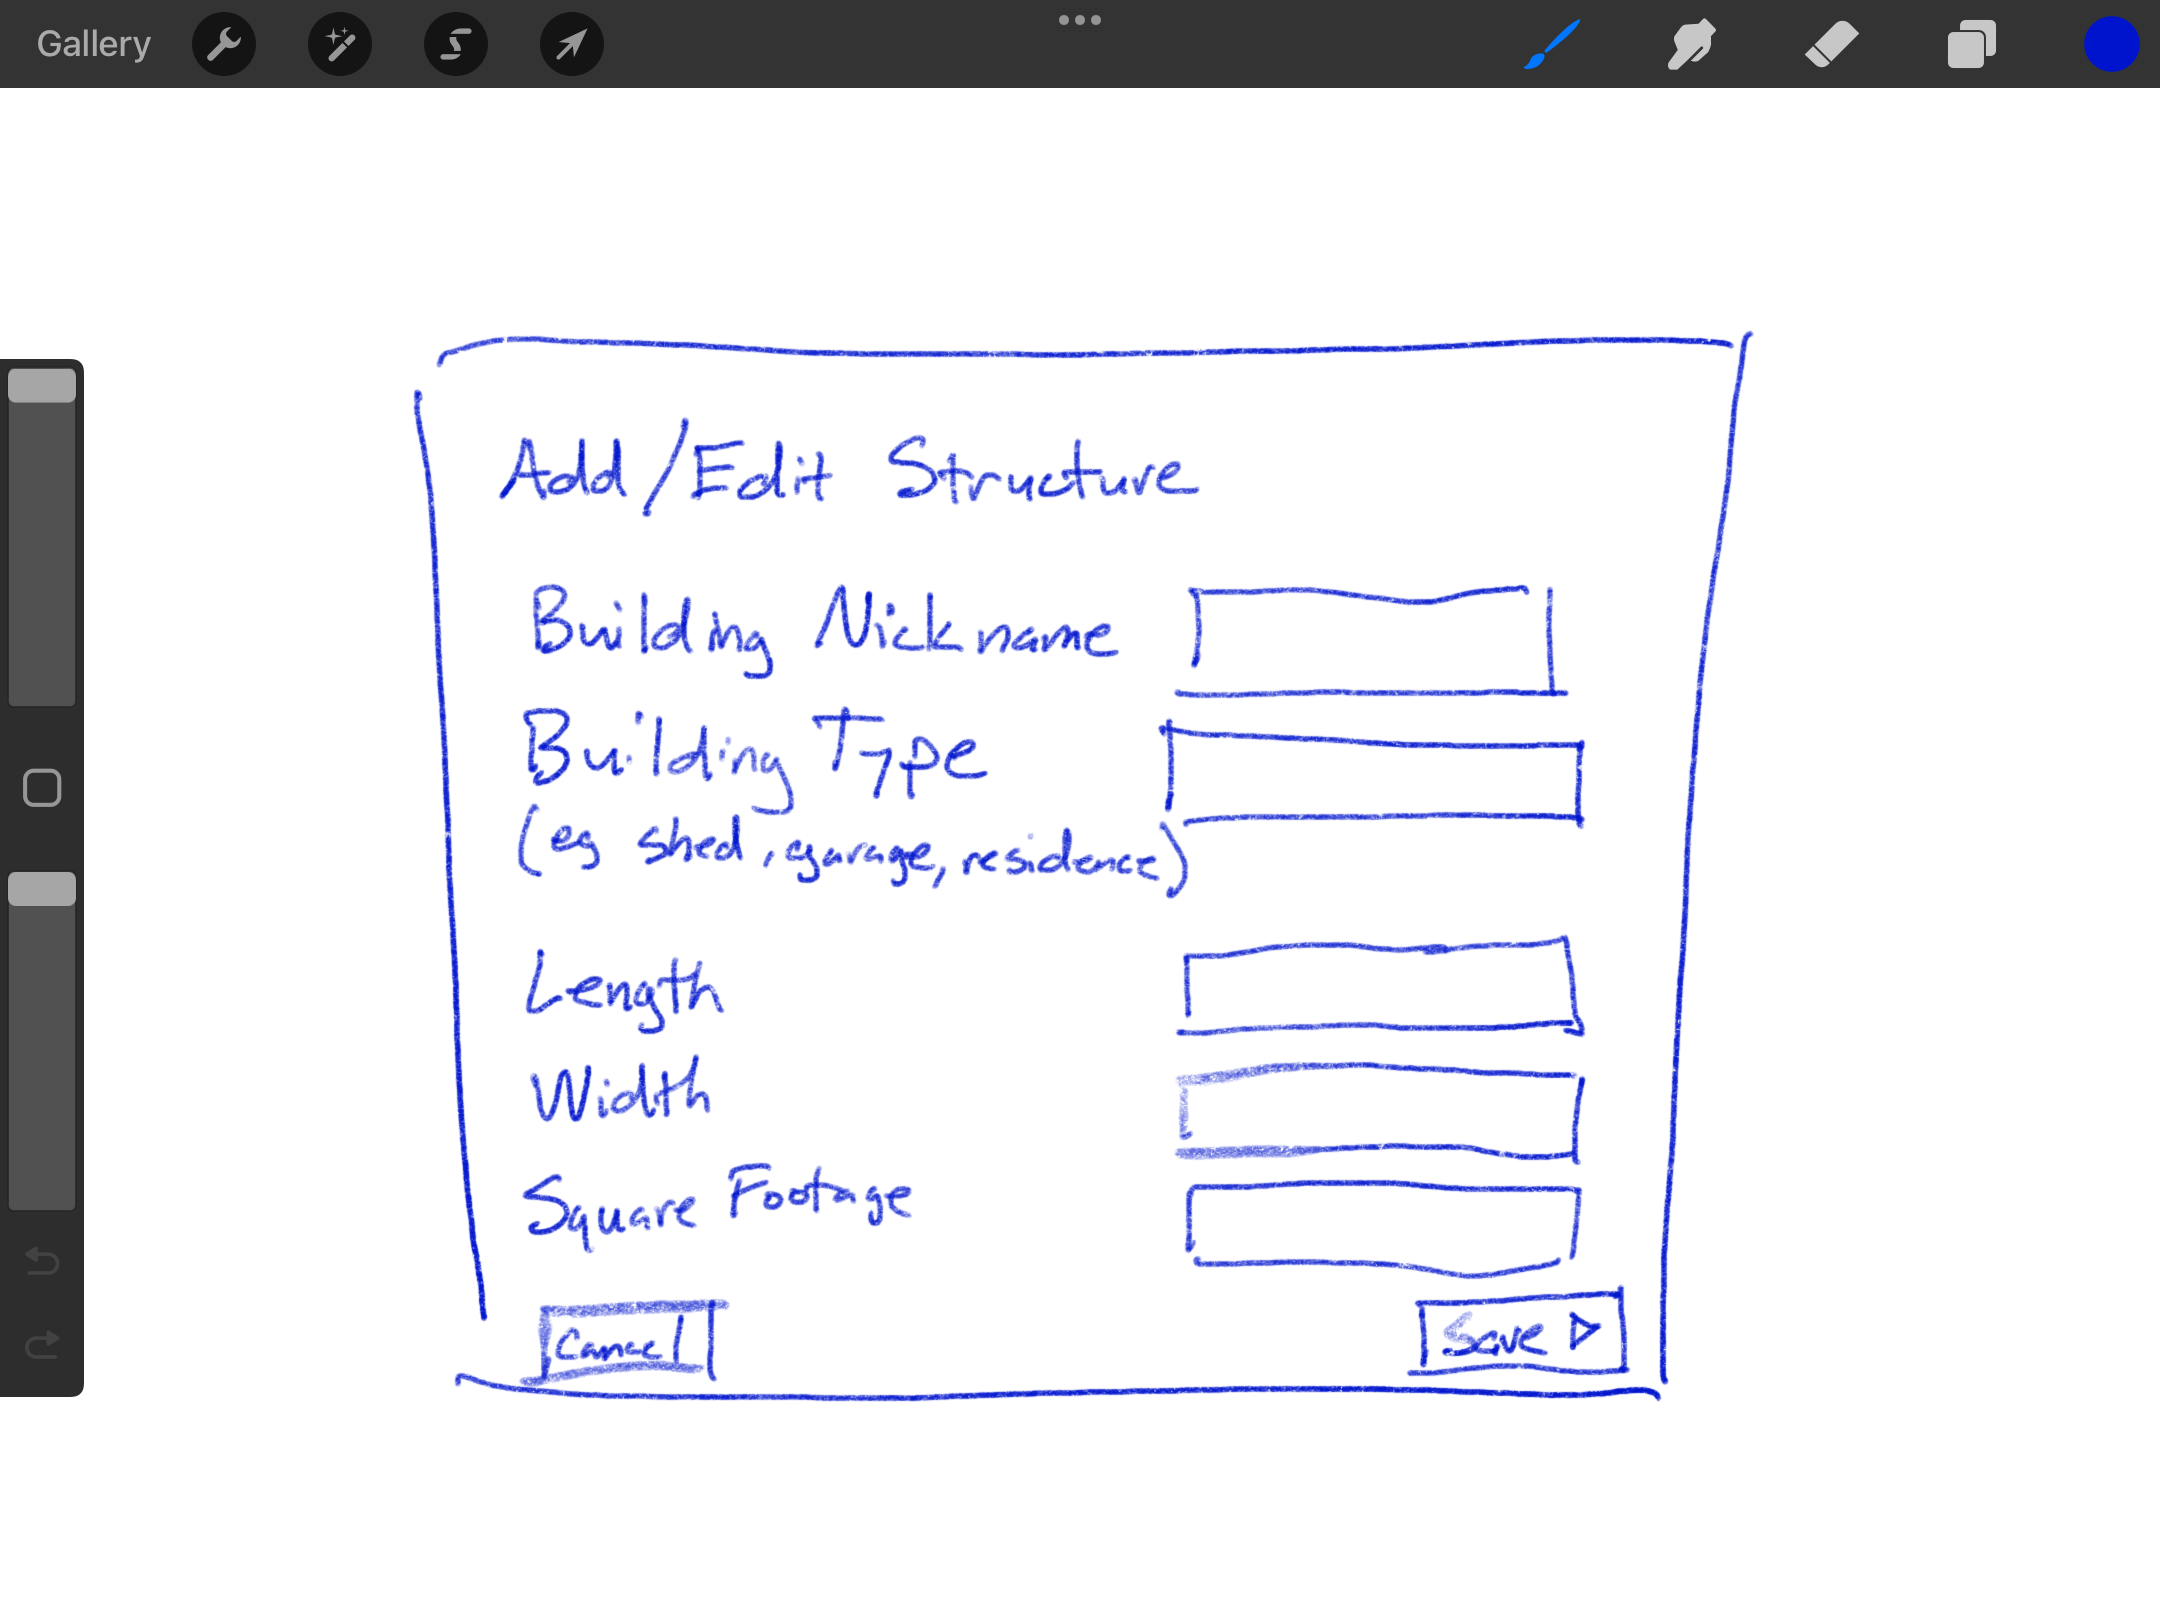 Gallery
Add/Edit Structure
Building Nickname
Building Type
(eg shed, garage, residence)
Length
Width
Square Footage
Cancel
Save